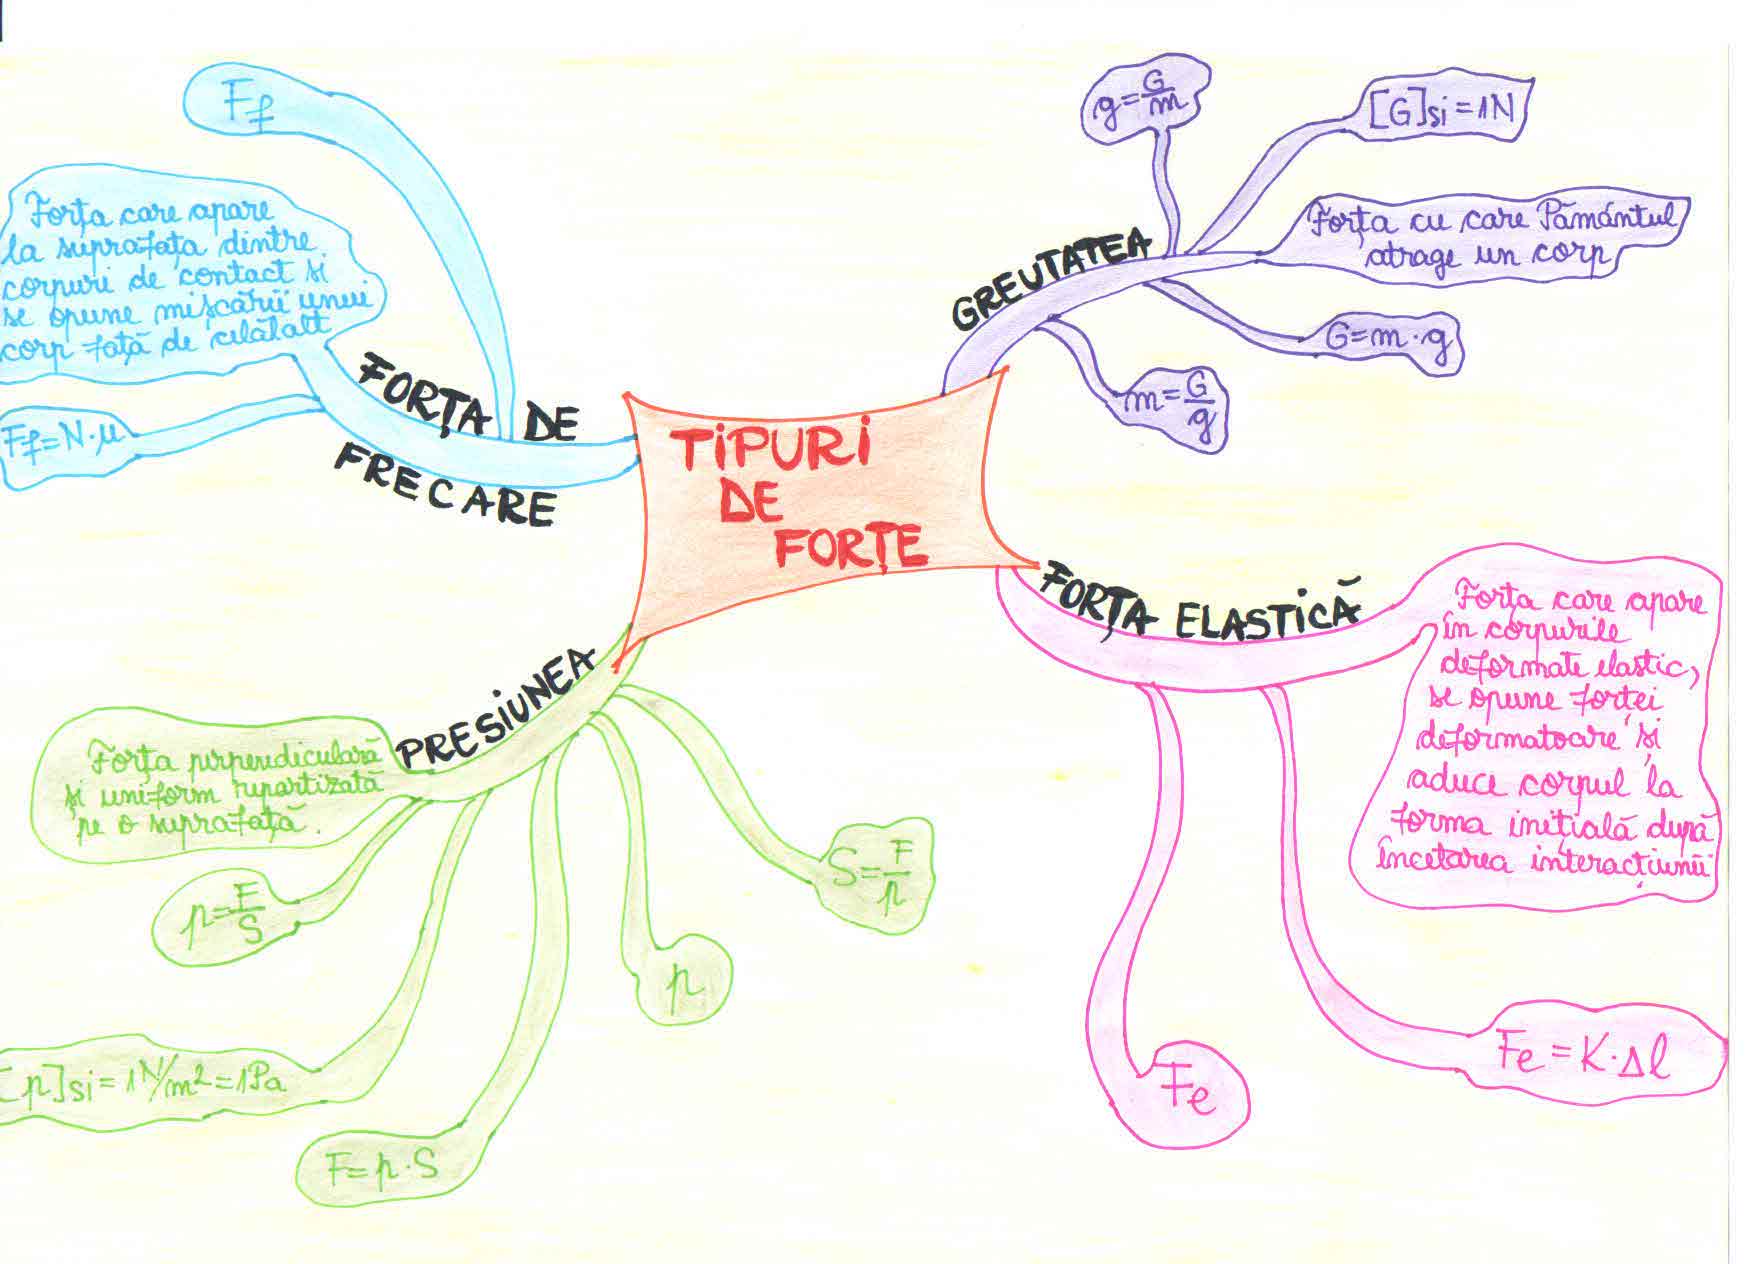 TIPURI
DE
FORȚE
FORȚA DE
FRECARE
Ff
Forța care apare
la suprafața dintre
corpuri de contact și
se opune mișcării unui
corp față de celălalt
Ff=N·μ
GREUTATEA
g=G/m
[G]si=1N
Forța cu care Pământul
atrage un corp
G=m·g
m=G/g
FORȚA ELASTICĂ
Forța care apare
în corpurile
deformate elastic,
se opune forței
deformatoare și
aduce corpul la
forma inițială după
încetarea interacțiunii
Fe
Fe=K·Δl
PRESIUNEA
Forța perpendiculară
și uniform repartizată
pe o suprafață.
p=F/S
[p]si=1N/m²=1Pa
F=p·S
p
S=F/p